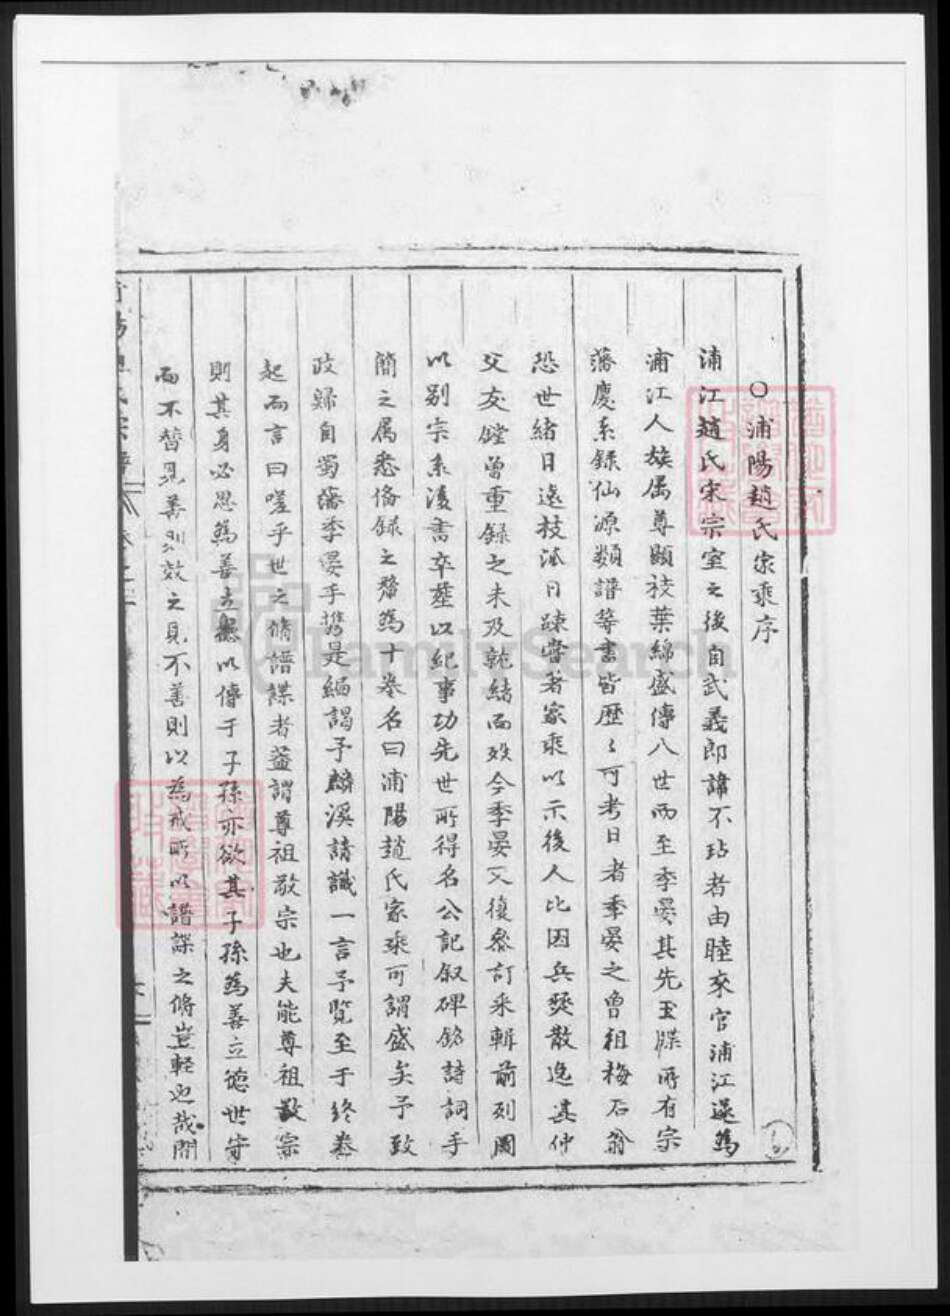 ○浦陽趙氏家乘序
浦江趙氏宋宗室之後自武義郎諱不玷者由睦來官浦江遂為
浦江人族属尊顯枝葉綿盛傳八世而至季晏其先玉牒所有宗
藩慶系録仙源類譜等書皆歴々可考日者季晏之曾祖梅石翁
恐世緒日遠枝派日踈嘗著家乘以示後人比因兵燹散逸其仲
父友鏜曾重録之未及就緒而歿今季晏又復叅訂采輯前列圖
以别宗系後書卒塟以紀事功先世所得名公記叙碑銘詩詞手
簡之属悉俻録之釐為十卷名曰浦陽趙氏家乘可謂盛矣予致
政歸自蜀藩季晏手携是編謁予麟溪請識一言予覧至于終卷
起而言曰嗟乎世之脩譜諜者葢謂尊祖敬宗也夫能尊祖敬宗
則其身必思為善去以傳于子孫亦欲其子孫為善立徳世守
而不替見善則效之見不善則以為戒所以譜諜之脩豈輕也哉閒
FamilySearch